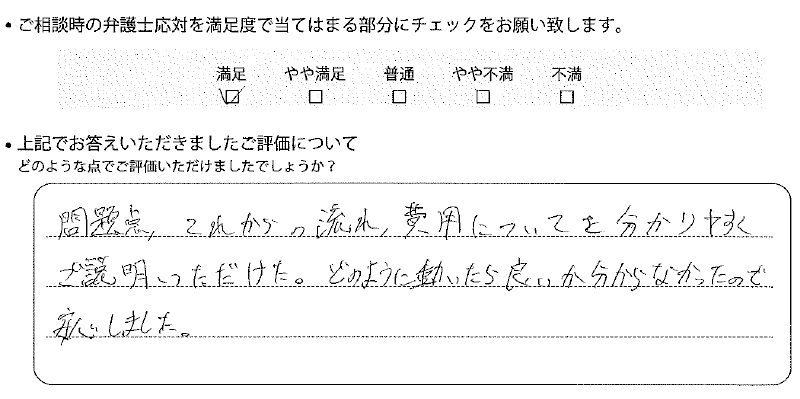 ・ご相談時の弁護士応対を満足度で当てはまる部分にチェックをお願い致します。
満足 やや満足 普通 やや不満 不満
・上記でお答えいただきましたご評価について
どのような点でご評価いただけましたでしょうか？
問題点，これからの流れ，費用についてを分かりやすく
ご説明いただけた。どのように動いたら良いか分からなかったので
安心しました。